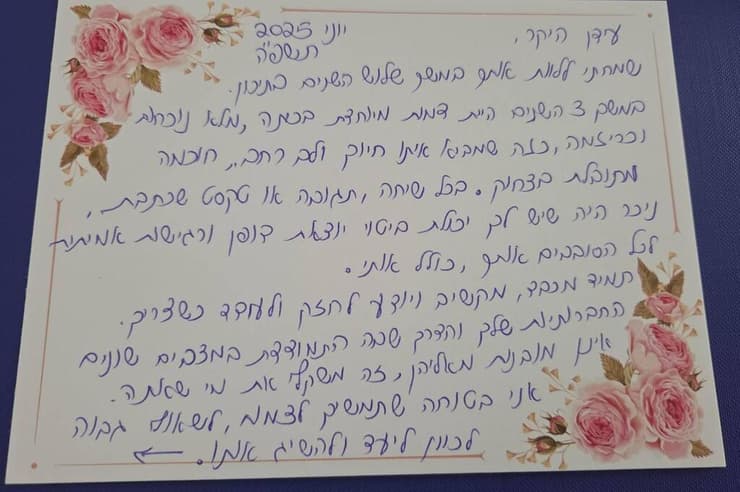 יוני 2025
תשפ"ה
עידן היקר,
שמחתי ללוות אותך במשך שלוש השנים בתיכון.
במשך 3 השנים היית דמות מיוחדת בכתה, מלא נוכחות
וכריזמה, כזה שמביא איתו חיוך ולב רחב, חוכמה
מתובלת בצחוק. בכל שיחה, תגובה או טקסט שכתבת,
ניכר היה שיש לך יכולת ביטוי יוצאת דופן ורגישות אמיתית
לכל הסובבים אותך, כולל אותי.
תמיד מכבד, מקשיב ויודע לחזק ולעודד כשצריך.
החברותיות שלך והדרך שבה התמודדת במצבים שונים
אינן מובנות מאליהן, זה משקף את מי שאתה.
אני בטוחה שתמשיך לצמוח, לשאוף גבוה
לכוון ליעד ולהשיג אותו. ←